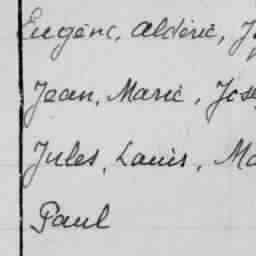 Eugène, Aldéric, J
Jean, Marie, Jose
Jules, Louis, Ma
Paul